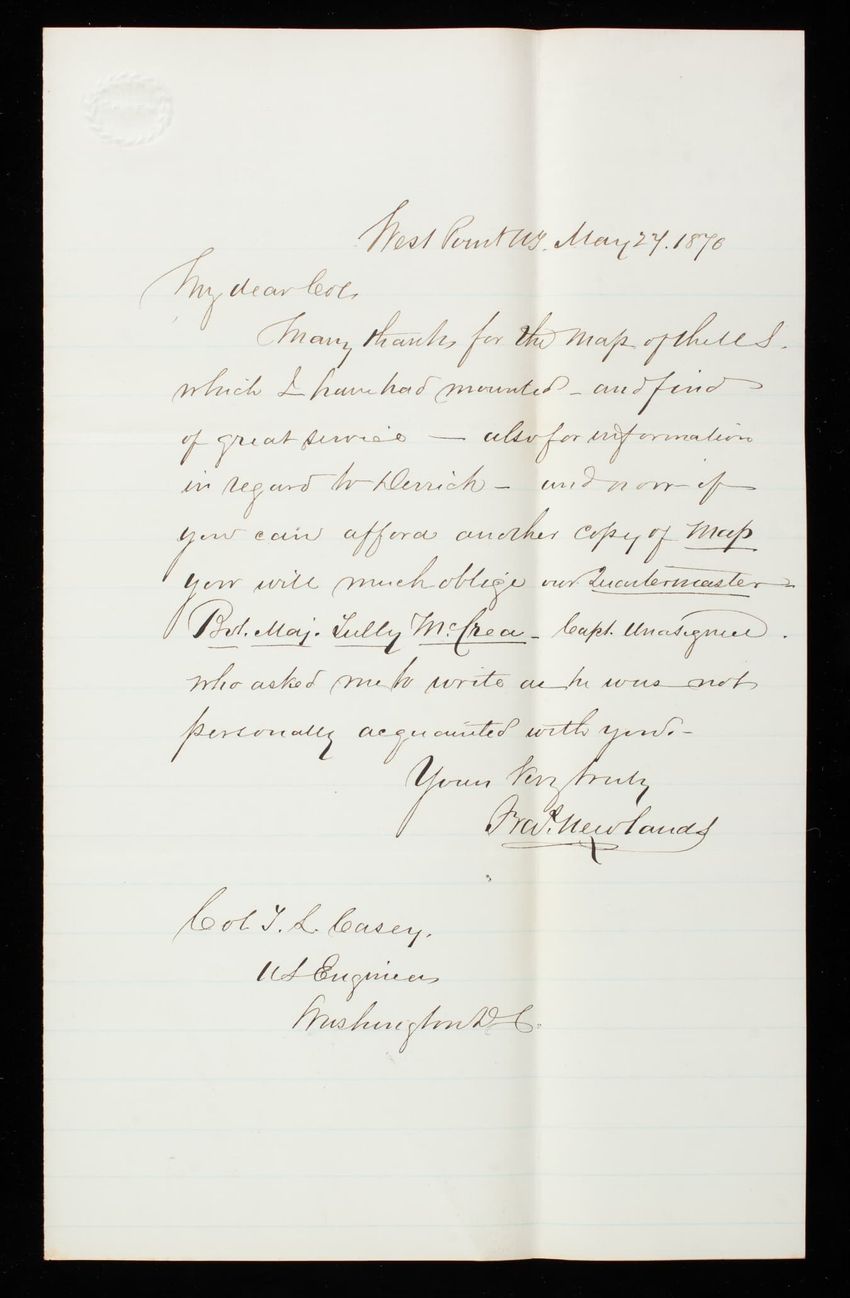 West Point NY. May 27. 1870
My dear Col.
Many thanks for the Map of the U S.
which I have had mounted - and find
of great service — also for information
in regard to Derrick - and now if
you can afford another copy of Map
you will much oblige our Quartermaster -
Bvt. Maj. Tully McCrea - Capt. Unassigned.
who asked me to write as he was not
personally acquainted with you. -
Yours Very truly
Fred. Newlands
Col. T. L. Casey.
U S Engineers
Washington D. C.